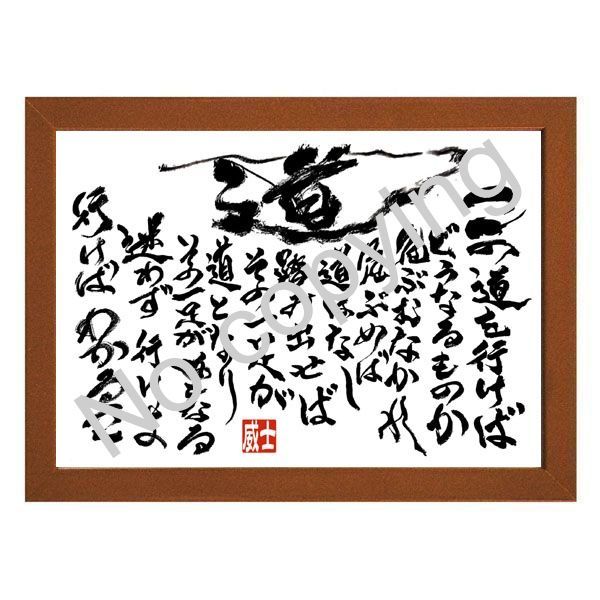 道
この道を行けば
どうなるものか
危ぶむなかれ
危ぶめば
道はなし
踏み出せば
その一足が
道となり
その一足が道となる
迷わず行けよ
行けばわかるさ
威士
No copying